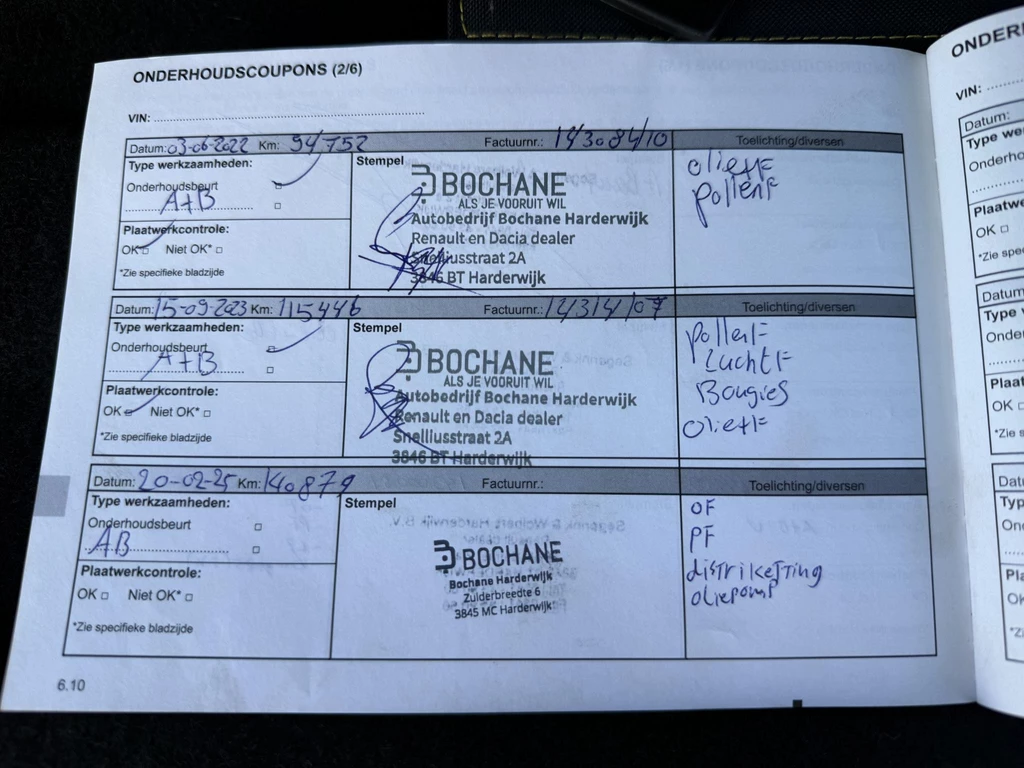 ONDERHOUDSCOUPONS (2/6)
VIN:
Datum: 03-06-2022 Km: 94752 Factuurnr.: 143084/10 Toelichting/diversen
Type werkzaamheden:
Onderhoudsbeurt
A+B
Plaatwerkcontrole:
OK Niet OK*
*Zie specifieke bladzijde
Stempel
BOCHANE
ALS JE VOORUIT WIL
Autobedrijf Bochane Harderwijk
Renault en Dacia dealer
Snelliusstraat 2A
3846 BT Harderwijk
olieF
pollenF
Datum: 15-09-2023 Km: 115446 Factuurnr.: Toelichting/diversen
Type werkzaamheden:
Onderhoudsbeurt
A+B
Plaatwerkcontrole:
OK Niet OK*
*Zie specifieke bladzijde
Stempel
BOCHANE
ALS JE VOORUIT WIL
Autobedrijf Bochane Harderwijk
Renault en Dacia dealer
Snelliusstraat 2A
3846 BT Harderwijk
pollenF
LuchtF
Bougies
olieF
Datum: 20-02-25 Km: 140879 Factuurnr.: Toelichting/diversen
Type werkzaamheden:
Onderhoudsbeurt
AB
Plaatwerkcontrole:
OK Niet OK*
*Zie specifieke bladzijde
Stempel
BOCHANE
Bochane Harderwijk
Zuiderbreedte 6
3845 MC Harderwijk
OF
PF
distriketting
oliepomp
6.10
VIN:
Datum:
OK